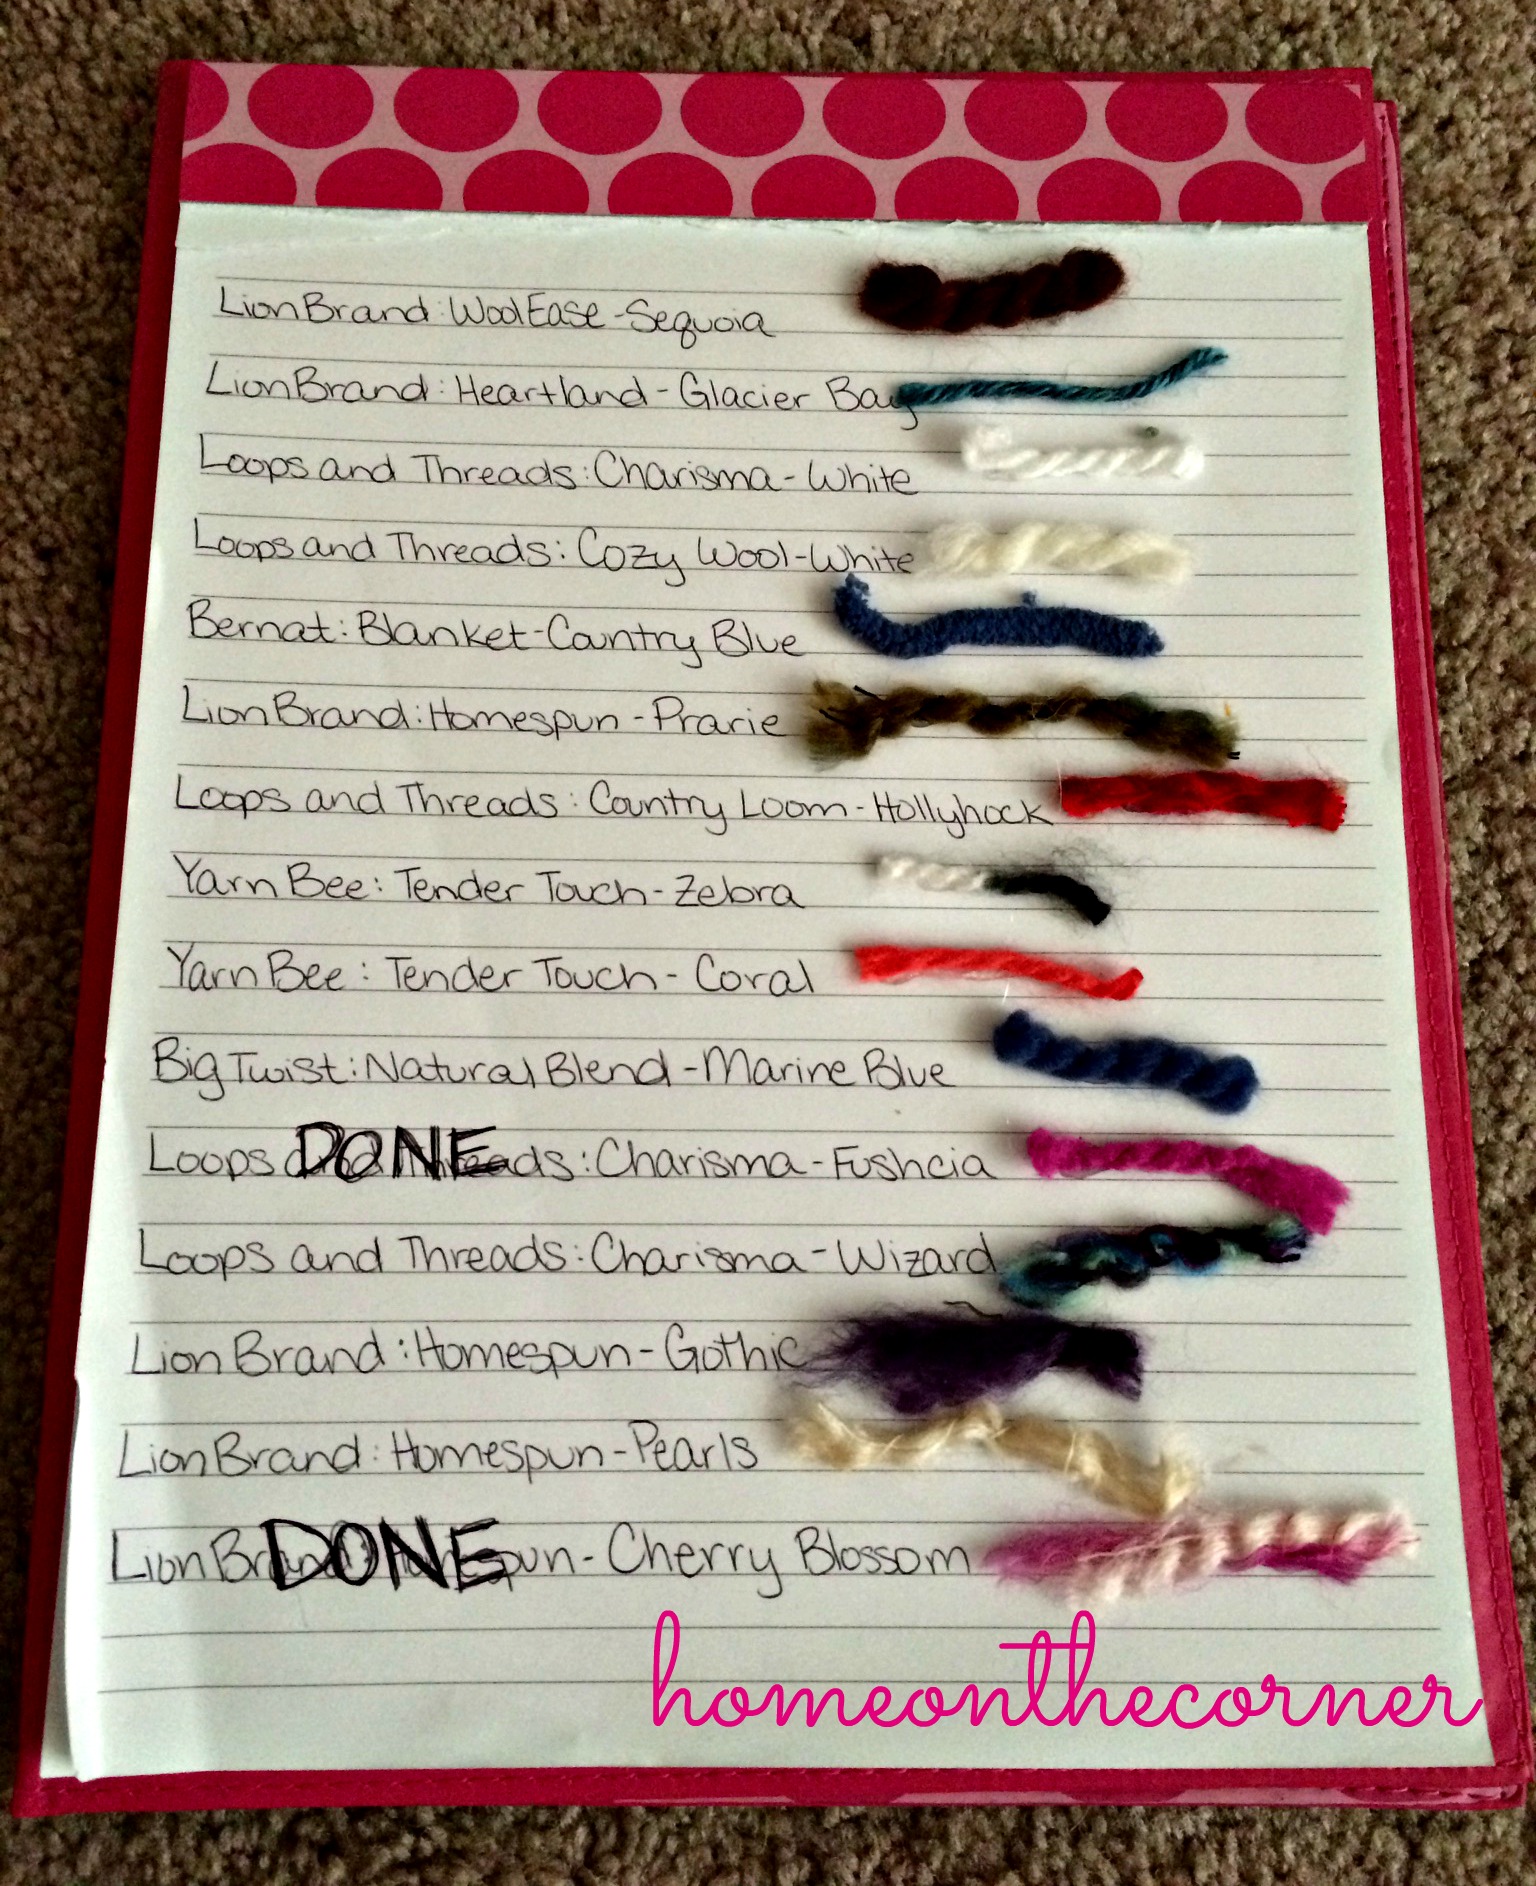 Lion Brand: Wool Ease - Sequoia
Lion Brand: Heartland - Glacier Bay
Loops and Threads: Charisma - White
Loops and Threads: Cozy Wool - White
Bernat: Blanket - Country Blue
Lion Brand: Homespun - Prarie
Loops and Threads: Country Loom - Hollyhock
Yarn Bee: Tender Touch - Zebra
Yarn Bee: Tender Touch - Coral
Big Twist: Natural Blend - Marine Blue
DONE
Loops and Threads: Charisma - Fushcia
Loops and Threads: Charisma - Wizard
Lion Brand: Homespun - Gothic
Lion Brand: Homespun - Pearls
DONE
Lion Brand: Homespun - Cherry Blossom
homeonthecorner